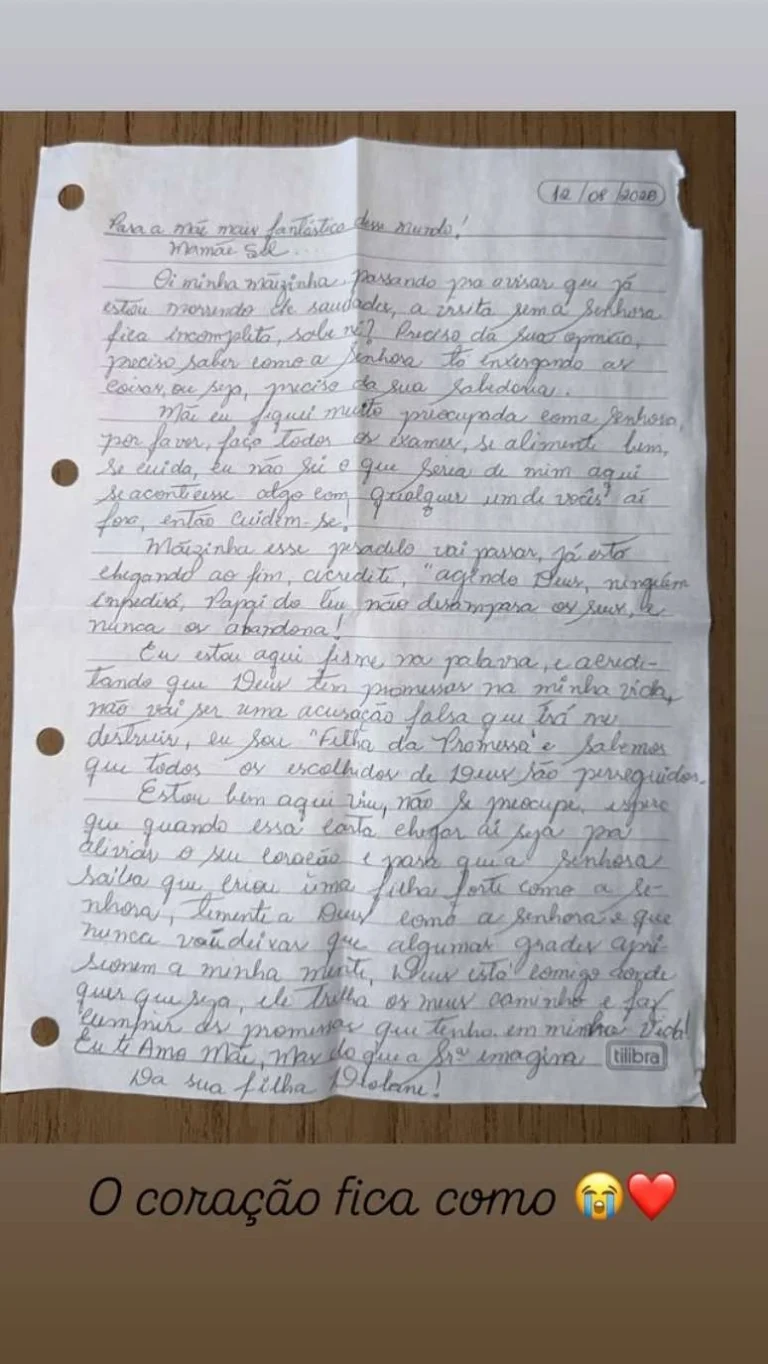 12/08/2020
Para a mãe mais fantástica desse mundo!
Mamãe Sol...
Oi minha mãizinha, passando pra avisar que já
estou morrendo de saudades, a visita sem a Senhora
fica incompleta, sabe né? Preciso da sua opinião,
preciso saber como a Senhora tá enxergando as
coisas, ou seja, preciso da sua Sabedoria.
Mãe eu fiquei muito preocupada com a Senhora,
por favor, faça todos os exames, se alimente bem,
se cuida, eu não sei o que seria de mim aqui
se acontecesse algo com qualquer um de vocês aí
fora, então cuidem-se!
Mãizinha esse pesadelo vai passar, já está
chegando ao fim, acredite, "agindo Deus, ninguém
impedirá, Papai do Céu não desampara os seus, e
nunca os abandona!
Eu estou aqui firme na palavra, e acredi-
tando que Deus tem promessas na minha vida,
não vai ser uma acusação falsa que irá me
destruir, eu sou "Filha da Promessa" e sabemos
que todos os escolhidos de Deus são perseguidos.
Estou bem aqui viu, não se preocupe, espero
que quando essa carta chegar aí seja pra
aliviar o seu coração e para que a Senhora
saiba que criou uma filha forte como a Se-
nhora, temente a Deus como a Senhora e que
nunca vou deixar que algumas grades apri-
sionem a minha mente, Deus está comigo aonde
quer que seja, ele trilha os meus caminho e faz
cumprir as promessas que tenho em minha vida!
Eu te Amo Mãe, mas do que a Srª imagina
tilibra
Da sua filha
O coração fica como 😭❤️